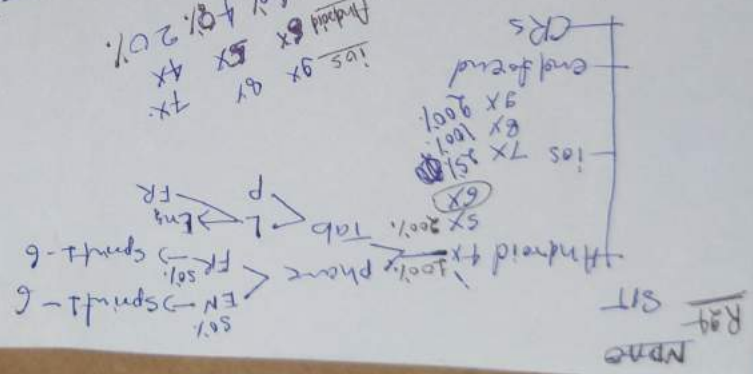 NDMO
R24 SIT
50%
EN -> Sprint1-6
Android 4x 100% phone < FR -> Sprint1-6
50%
5x 200% Tab < L -> Eng
6x P FR
ios 7x 25%
8x 100%
9x 200%
end to end
CRs
ios 9x 8x 7x
Android 6x 5x 4x
40% 20%